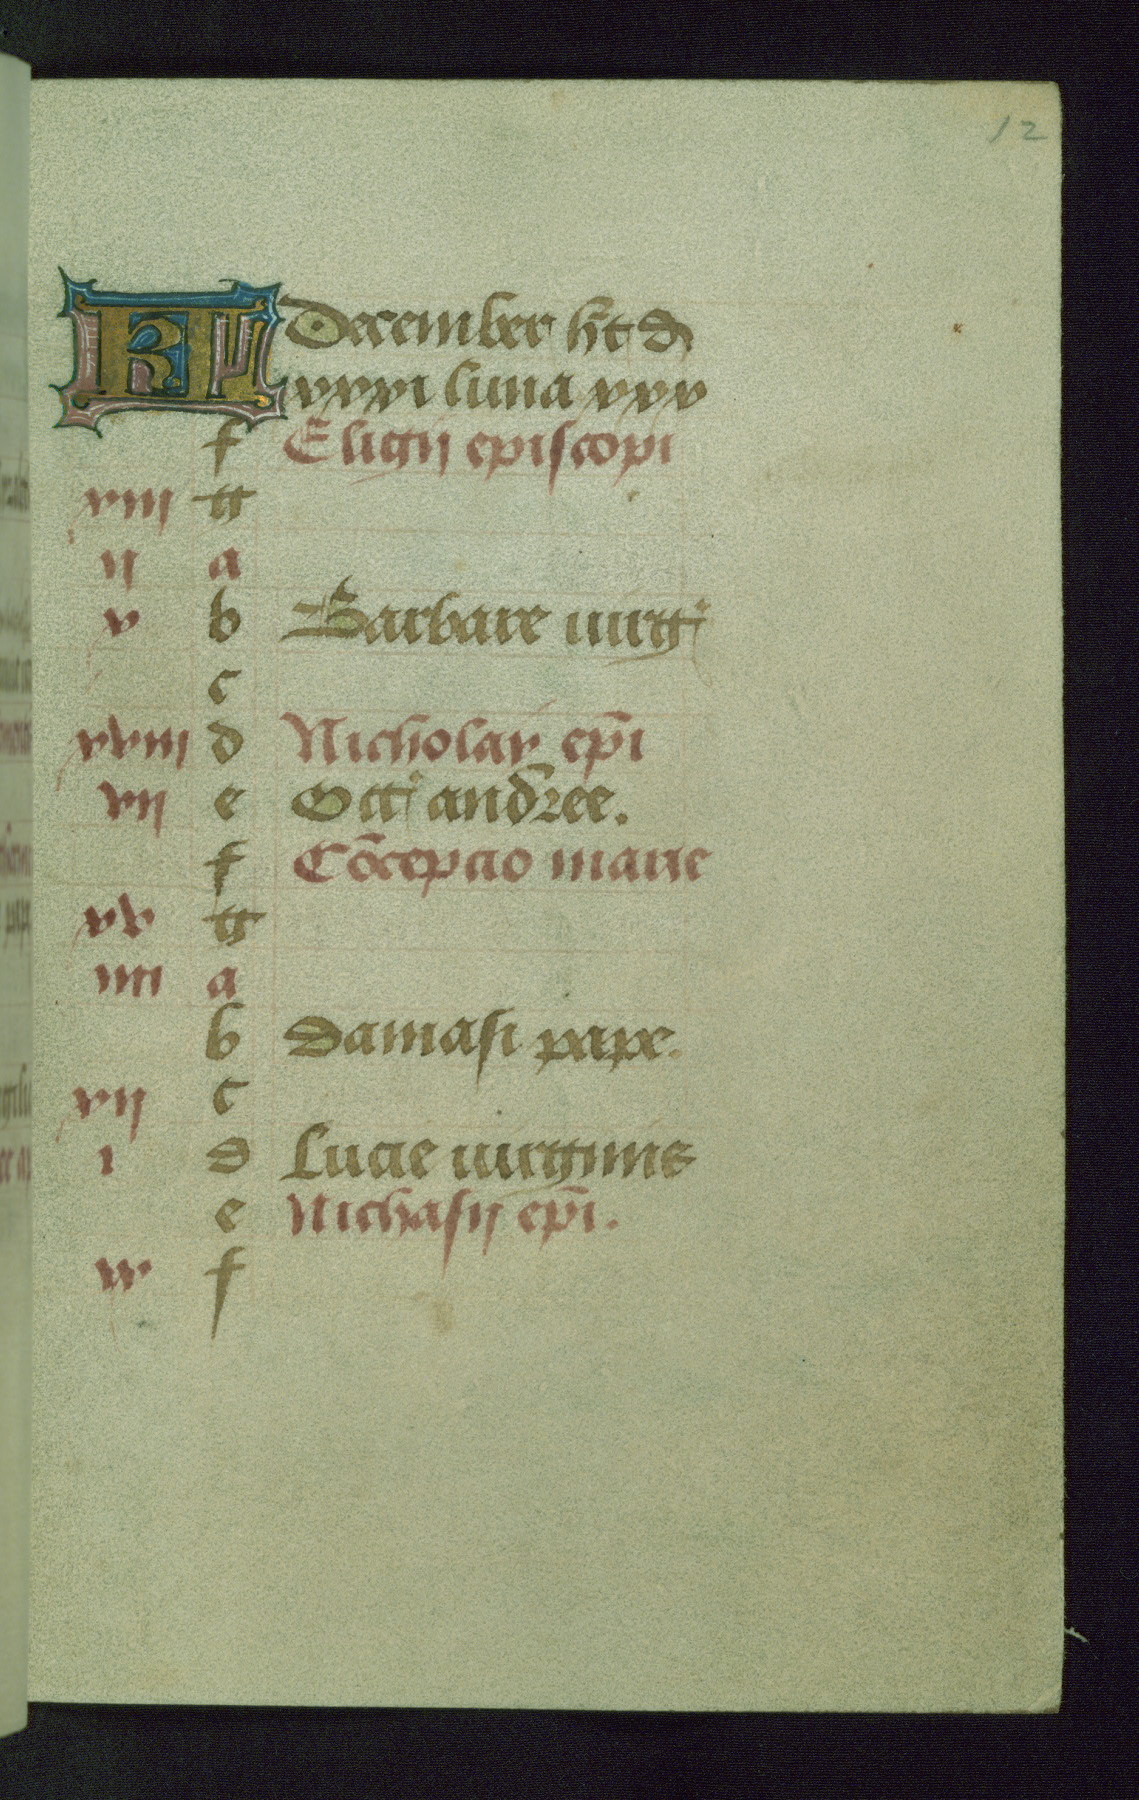 12
KL December h̄t d
xxxi luna xxx
f Eligij episcopi
xiii g
ij a
x b Barbare uirgi
c
xviii d Nicholay ep̄i
vij e Octi andree.
f Cōcepcio marie
xv g
iiii a
b damasi pape.
xij c
i d Lucie uirginis
e Nichasij ep̄i.
ix f